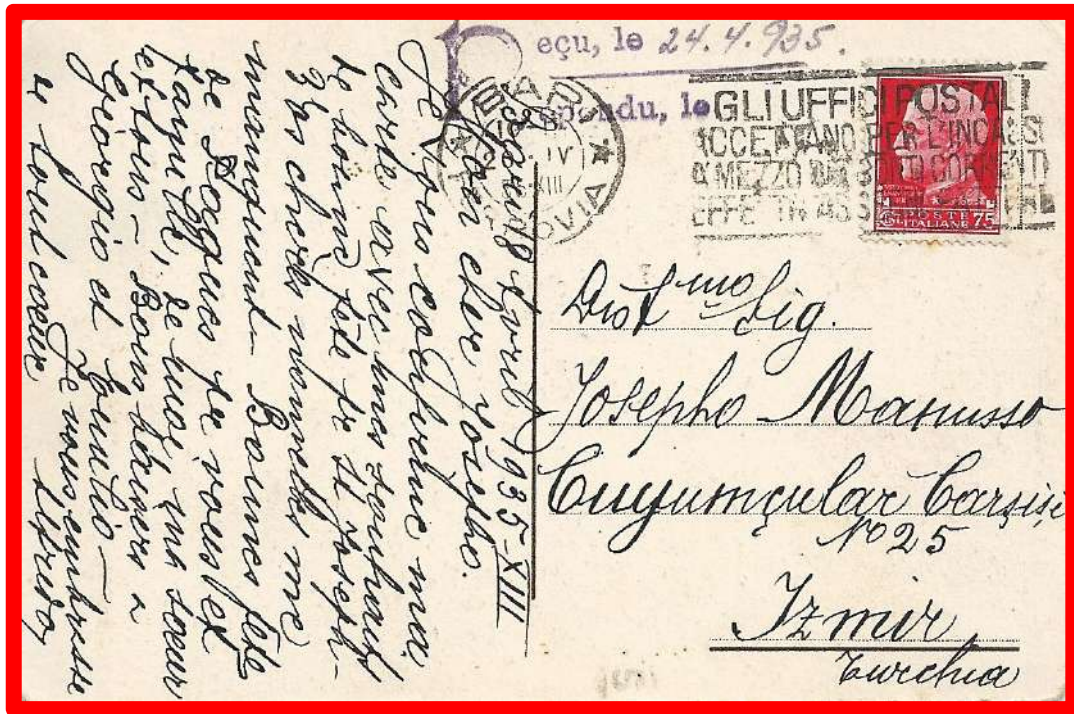 Reçu, le 24.4.935.
Répondu, le
GLI UFFICI POSTALI
ACCETTANO PER L'INCASSO
A MEZZO DEI CONTI CORRENTI
EFFETTI ASSEGNI
POSTE
ITALIANE 75
Dist mo Sig.
Josepho Manusso
Cuyumçular Çarşişi
No 25
Izmir
Turchia
8 Avril 935-XIII
Mon cher Josepho.
Je vous confirme ma
carte avec mes souhaits
de bonne fête de St Joseph-
Vos chères nouvelles me
manquent. Bonnes fêtes
de Pâques de vous et
famille, de moi, ma soeur
et tous- Bons baisers a
Giorgio et Emilio-
Je vous embrasse
de tout coeur